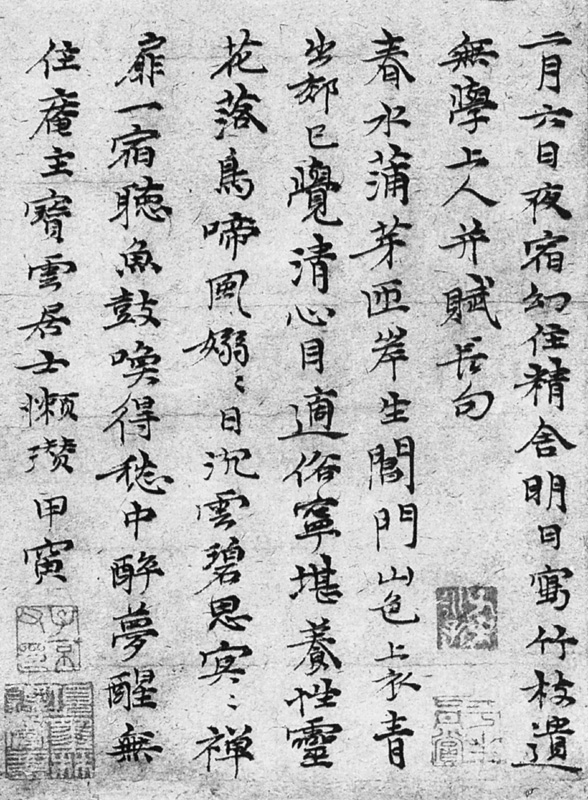 二月六日夜宿幻住精舍明日寫竹枝遺
無學上人并賦長句
春水蒲芽匝岸生閶門山色上衣青
出郊已覺清心目適俗寧堪養性靈
花落鳥啼風嫋〻日沉雲碧思冥〻禪
扉一宿聽魚鼓喚得愁中醉夢醒無
住庵主寶雲居士懶瓚甲寅